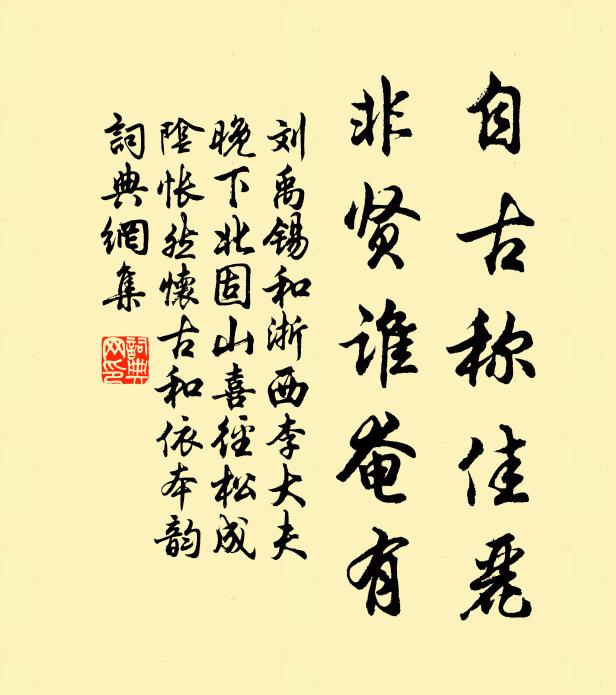 自古称佳麗
非贤谁奄有
刘禹锡和浙西李大夫
晚下北固山喜徑松成
陰怅然懷古和依本韵
詞典網集
詞典
网印